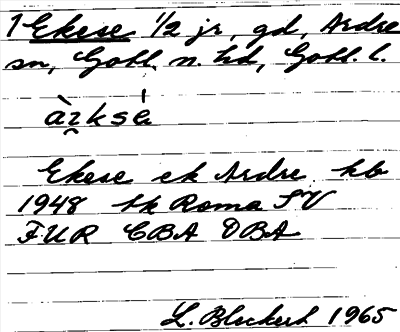 1 Ekese 1/2 jr, gd, Ardre
sn, Gotl. n. hd, Gotl. l.
Ekese ek Ardre hb
1948 tk Roma SV
FUR CBA DBA
L. Bleckert 1965